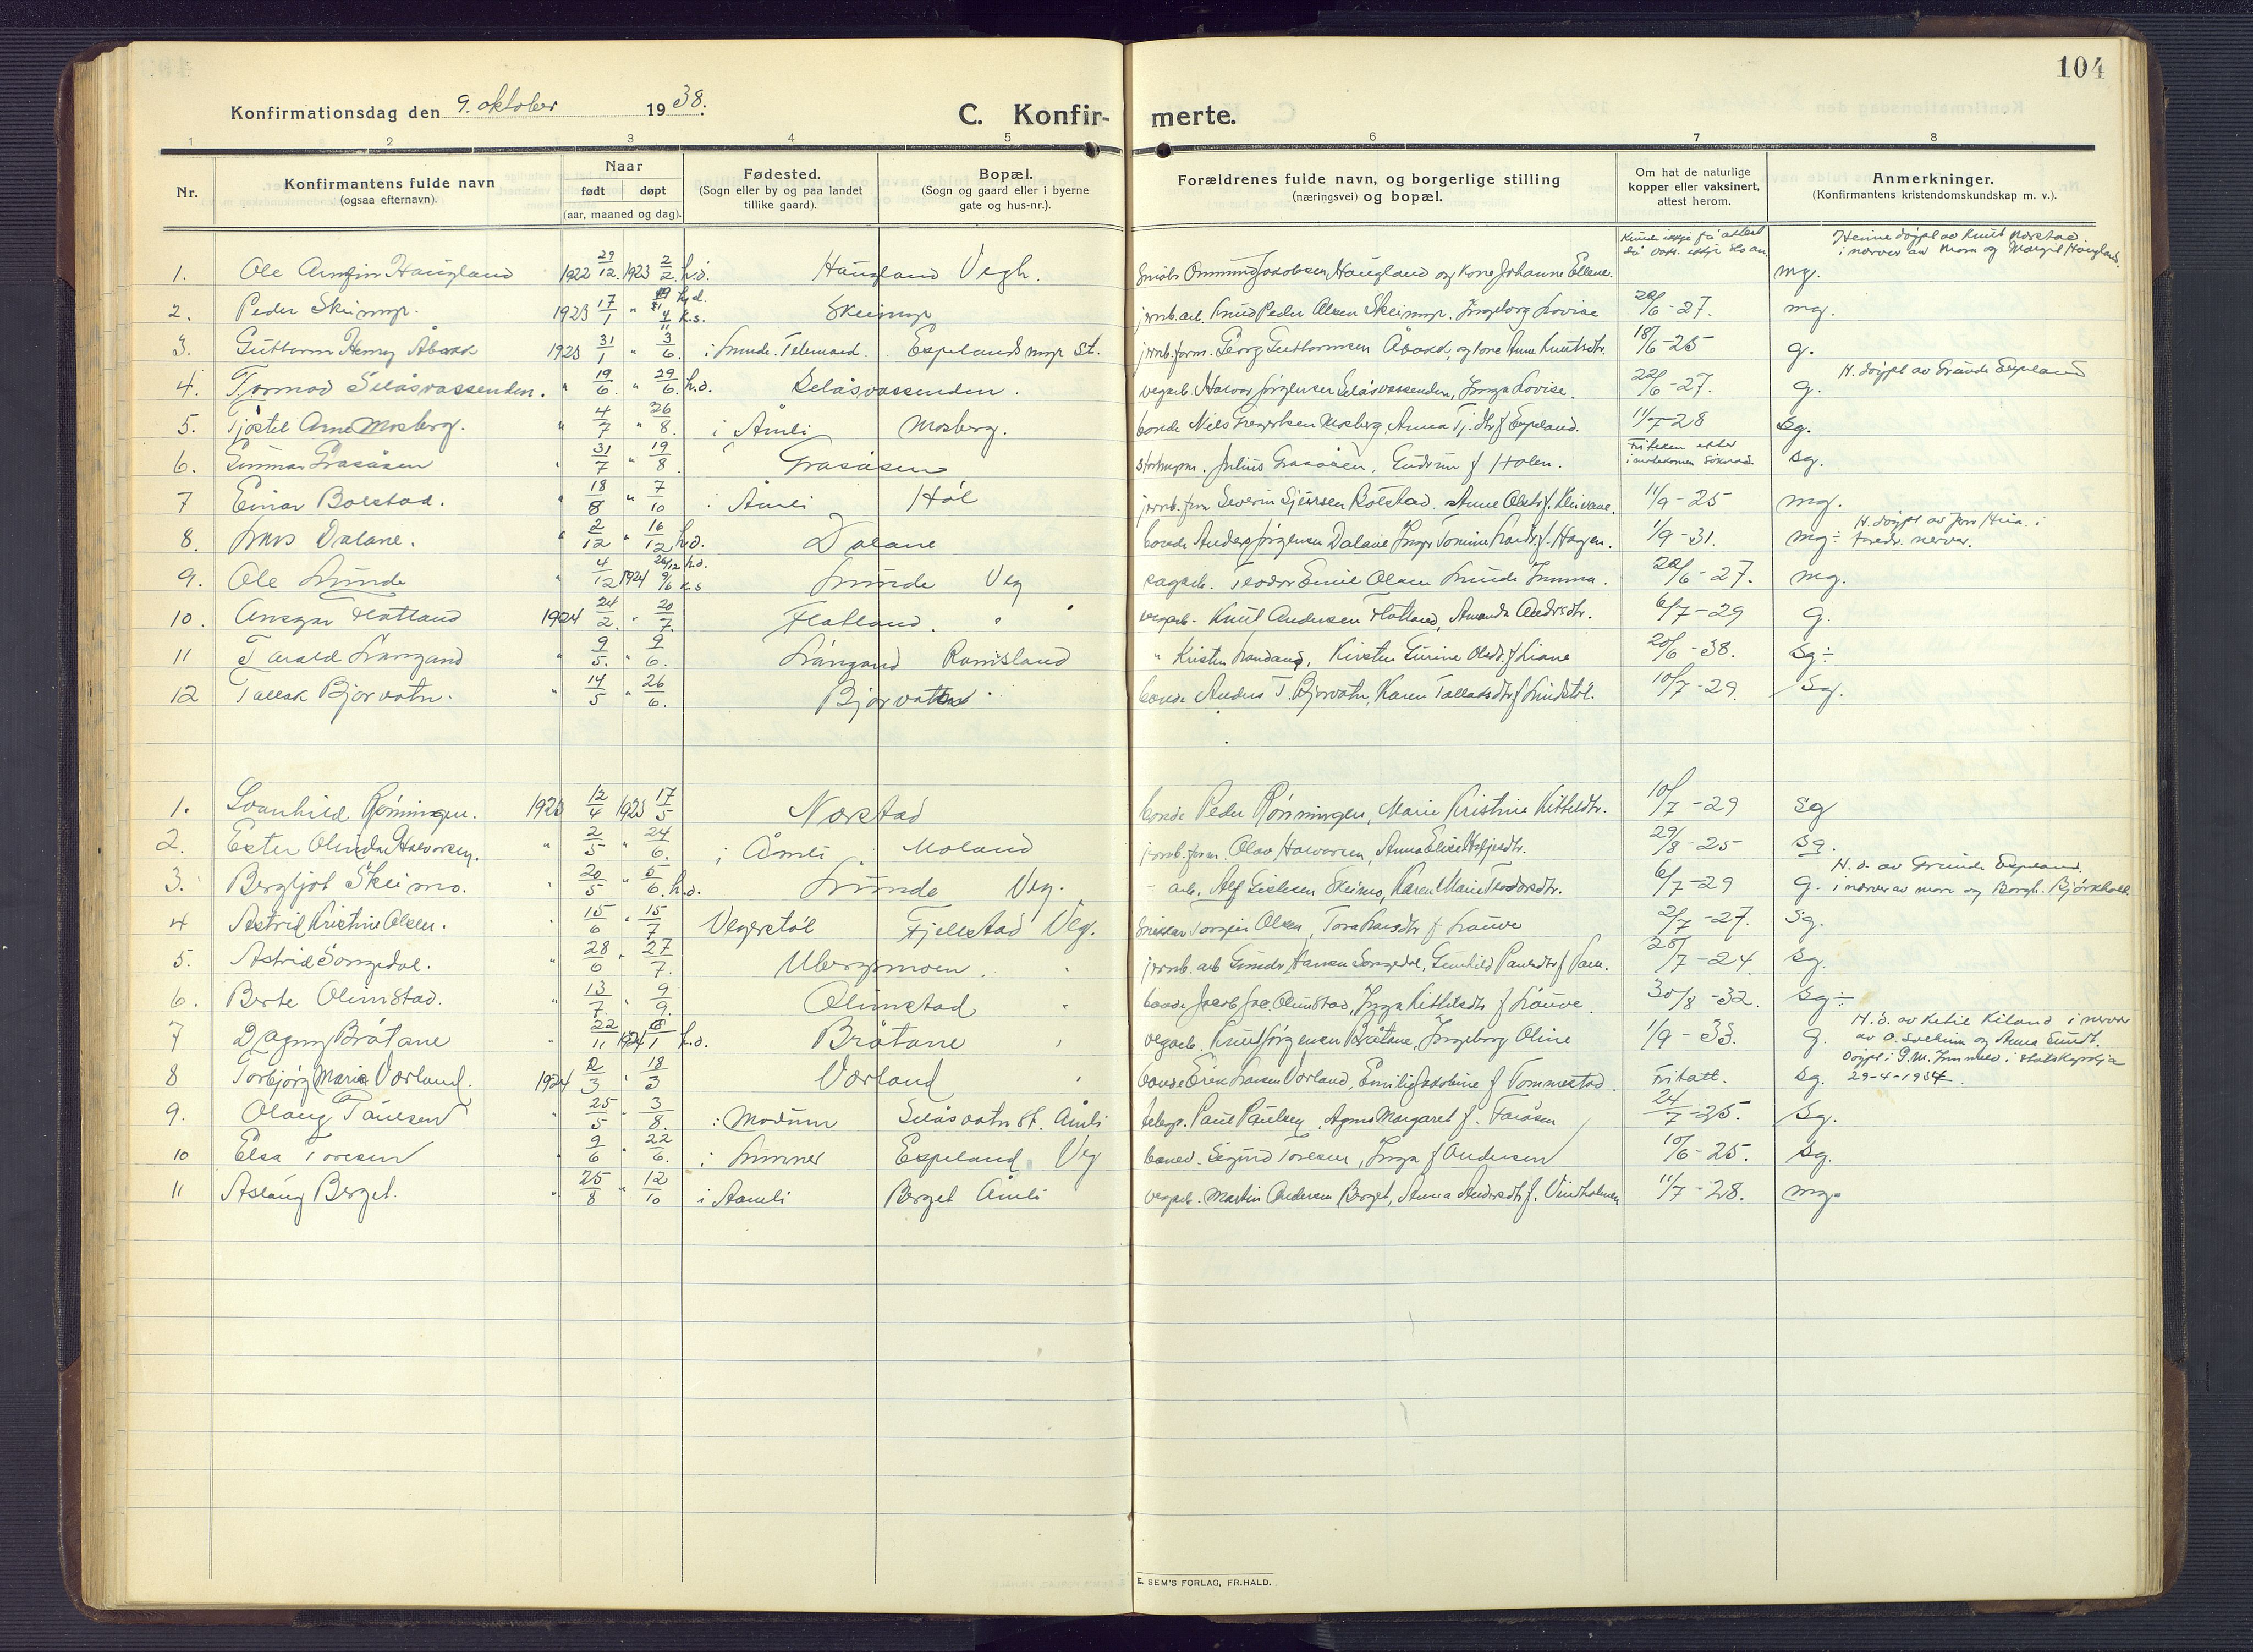 104
Konfirmationsdag den 9. oktober 1938.
C. Konfir- merte.
1 2 3 4 5 6 7 8
Nr. Konfirmantens fulde navn (ogsaa efternavn). Naar født døpt (aar, maaned og dag). Fødested. (Sogn eller by og paa landet tillike gaard). Bopæl. (Sogn og gaard eller i byerne gate og hus-nr.). Forældrenes fulde navn, og borgerlige stilling (næringsvei) og bopæl. Om hat de naturlige kopper eller vaksinert, attest herom. Anmerkninger. (Konfirmantens kristendomskundskap m. v.).
1. Ole Arnfin Haugland 1922 29/12. 1923 2/2. h.d. Haugland Vegh. Ommund Jakobsen Haugland og kone Johanne Ellene. mg. Heime døypt av Knut Nærstad i nærver av Mora og Margit Haugland.
2. Peder Skeimyr. 1923 17/1 " h.d. 4/11 k.s. Skeimyr jernb. arb. Knud Peder Olsen Skeimyr. Ingeborg Lovise 20/6 - 27. mg.
3. Guttorm Henry Åbakk 1923 31/1 " 3/6. i Lunde. Telemark. Espelandsmyr St. jernb. form. Georg Guttormsen Åbakk, og kone Anne Knutsdtr. 18/6 - 25 g.
4. Tormod Selåsvassenden. " 19/6 " 29/6. h.d. Selåsvassenden. vegarb. Halvor Jørgensen Selåsvassenden, Inga Lovise. 22/6 - 27. g. H. døypt av Gunde Espeland
5. Tjøstel Arne Mosberg. " 4/7 " 26/8. i Åmli Mosberg. bonde Nils Gregersen Mosberg. Anna Tj. dtr f Espeland. 11/7 - 28 sg.
6. Gunnar Grasåsen " 31/7 " 19/8 Grasåsen Julius Grasåsen, Gudrun f Holen. sg.
7 Einar Bolstad. " 18/8 " 7/10 i Åmli Høl jernb. frm Severin Sjursen Bolstad. Anne Olsdtr f. Kleivane. 11/9 - 25 mg.
8. Lars Dalane. " 2/12 " 16/12 h.d. Dalane bonde Anders Jørgensen Dalane Inger Tomine Larsdtr. f. Hagen. 1/9 - 31. mg ÷ H. døypt av Jens Hua. i foreldr. nærver.
9. Ole Lunde " 4/12 1924 24/12 h.d. 9/6 k.s. Lunde Veg sagarb. Teodor Emil Olsen Lunde Emma. 20/6 - 27. mg.
10. Ansgar Flatland 1924 24/2. " 20/7. Flatland. " vegarb. Knut Andersen Flatland, Amanda Andersdtr. 6/7 - 29 g.
11 Tarald Langand " 9/5. " 9/6. Langand Ramsland " Kristen Landand, Kirsten Gurine Olsdtr. f Liane 20/6 - 38. sg ÷
12 Tallak Bjorvatn. " 14/5 " 26/6. Bjorvatn bonde Anders T. Bjorvatn, Karen Talleksdtr f Lindtøl. 10/7 - 29. sg.
1. Svanhild Rønningen. 1923 12/4 1923 17/5 Nærstad bonde Peder Rønningen, Marie Kristine Kittelsdtr. 10/7 - 29 sg
2. Ester Olinda Halvorsen. " 2/5 " 24/6. i Åmli Moland jernb. form. Olav Halvorsen, Anna Elise 29/8 - 25 sg.
3. Bergljot Skeimo. " 20/5 " 5/6. h.d. Lunde Veg. - arb. Alf Gislesen Skeimo, Karen Marie Teodorsdtr. 6/7 - 29 g. H. d. av Grunde Espeland. i nærver av mora og Borgh. Bjørkholt
4 Astrid Kristine Olsen. " 15/6 " 15/7 Vegerstøl Fjellstad Veg. snikkar Torgier Olsen, Tora Larsdtr f Lauve 2/7 - 27. sg.
5. Astrid Songedal. " 28/6 " 27/7. Ubergsmoen. " jernb. arb Gunder Hansen Songedal, Gunhild Paulsdtr f 28/7 - 24 sg.
6. Berte Olimstad. " 13/7. " 9/9. Olimstad " bonde Jacob Jac. Olimstad, Inga Kittelsdtr f Lauve. 30/8 - 32. sg ÷
7 Dagny Bråtane " 22/11 1924 6/1 h.d. Bråtane " vegarb. Knut Jørgensen Bråtane, Ingeborg Oline 1/9 - 33. g. H. d. av Ketil Kiland i nærver av O. Solheim og Anna Sundt.
8 Torbjørg Marie Vorland. 1924 2/3 " 18/3 Vorland " bonde Erik Larsen Vorland, Emilie Jakobine f Tommestad. Fritatt. sg. Døypt i P.M. i 29-4-1934.
9. Olaug Paulsen " 25/5 " 3/8. i Modum Selåsvatn St. Åmli telegr. Paul Paulsen, Agnes Margaret f. Faråsen 24/7 - 25. sg.
10 Elsa Toresen " 9/6 " 22/6. i Lunner Espeland Veg banev. Sigurd Toresen, Inga f Andersen 10/6 - 25. sg.
11 Aslaug Berget. " 25/8 " 12/10 i Aamli Berget Åmli vegarb. Martin Andersen Berget, Anna Andersdtr f. Vindholmen 11/7 - 28. mg.
E. SEM'S FORLAG, FR.HALD.